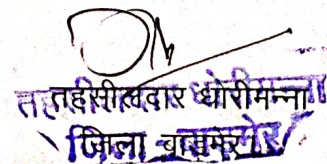 तहसीलदार धोरीमन्ना
जिला बाड़मेर